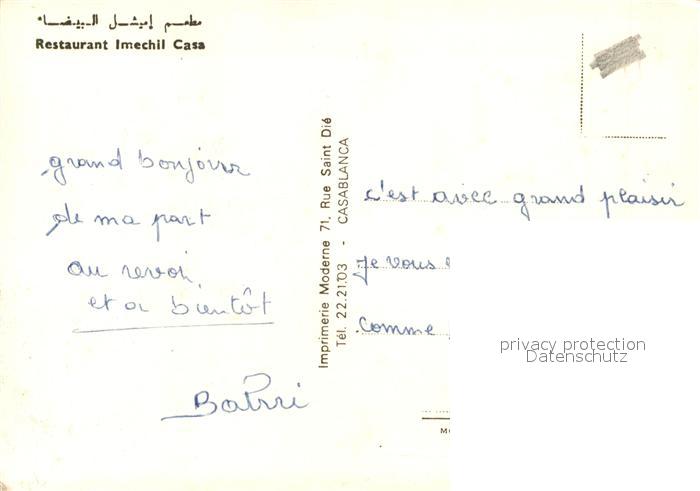 مطعم إميشل البيضاء
Restaurant Imechil Casa
grand bonjour
de ma part
au revoir
et a bientôt
Imprimerie Moderne 71, Rue Saint Dié
Tél. 22.21.03 - CASABLANCA
c'est avec grand plaisir
je vous
comme
privacy protection
Datenschutz